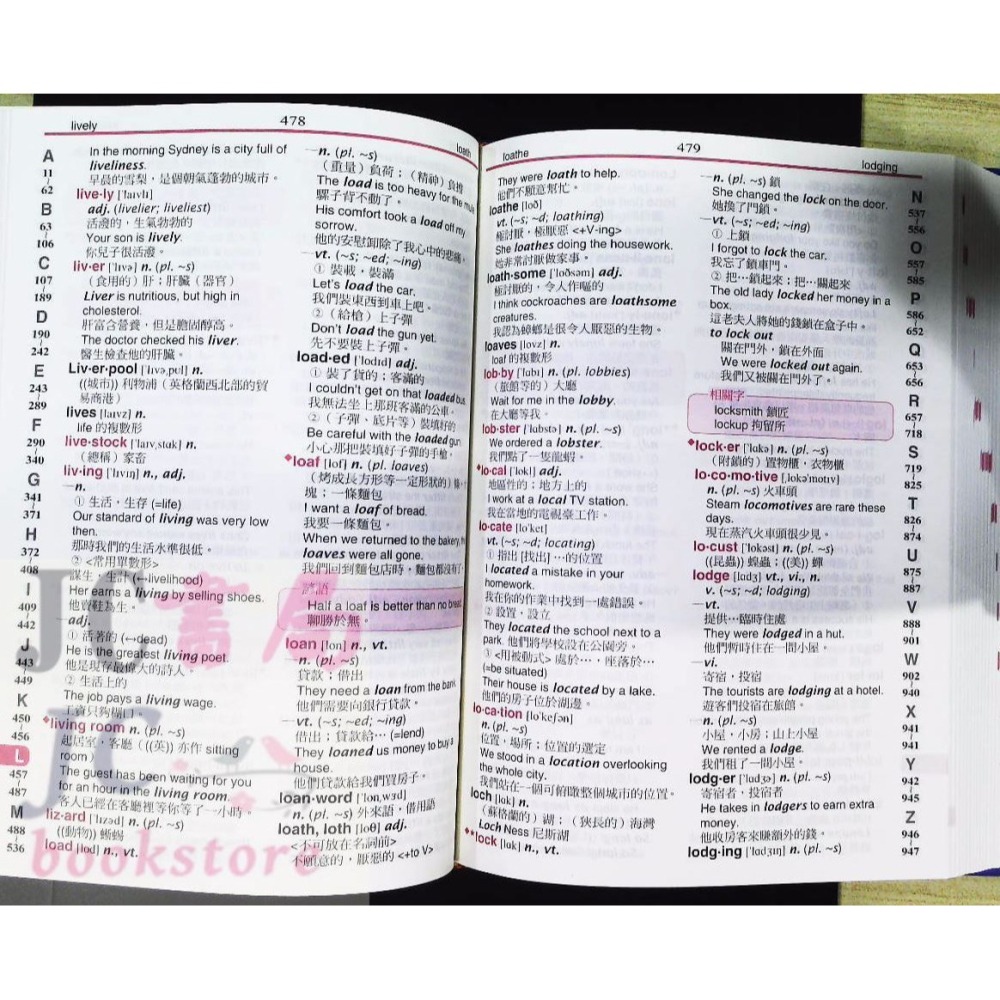 lively
478
loath
A
11
62
B
63
106
C
107
189
D
190
242
E
243
289
F
290
340
G
341
371
H
372
408
I
409
442
J
443
449
K
450
456
L
457
487
M
488
536
In the morning Sydney is a city full of
liveliness.
早晨的雪梨,是個朝氣蓬勃的城市。
live·ly [ˋlaɪvlɪ]
adj. (livelier; liveliest)
活潑的,生氣勃勃的
Your son is lively.
你兒子很活潑。
liv·er [ˋlɪvɚ] n. (pl. ~s)
(食用的) 肝;肝臟 (器官)
Liver is nutritious, but high in
cholesterol.
肝富含營養,但是膽固醇高。
The doctor checked his liver.
醫生檢查他的肝臟。
Liv·er·pool n.
((城市)) 利物浦 (英格蘭西北部的貿
易商港)
lives [laɪvz] n.
life 的複數形
live·stock n.
(總稱) 家畜
liv·ing [ˋlɪvɪŋ] n., adj.
—n.
① 生活,生存 (=life)
Our standard of living was very low
then.
那時我們的生活水準很低。
② <常用單數形>
謀生,生計 (↔livelihood)
Her earns a living by selling shoes.
他賣鞋為生。
—adj.
① 活著的 (↔dead)
He is the greatest living poet.
他是現存最偉大的詩人。
② 生活上的
The job pays a living wage.
工資只夠糊口。
living room n. (pl. ~s)
起居室,客廳 ((英)) 亦作 sitting
room)
The guest has been waiting for you
for an hour in the living room.
客人已經在客廳裡等你等了一小時。
liz·ard [ˋlɪzɚd] n. (pl. ~s)
((動物)) 蜥蜴
load [lod] n., vt.
—n. (pl. ~s)
(重量) 負荷;(精神) 負擔
The load is too heavy for the mule.
騾子背不動了。
His comfort took a load off my
sorrow.
他的安慰卸除了我心中的悲痛。
—vt. (~s; ~ed; ~ing)
① 裝載,裝滿
Let's load the car.
我們裝東西到車上吧。
② (給槍) 上子彈
Don't load the gun yet.
先不要裝上子彈。
load·ed [ˋlodɪd] adj.
① 裝了貨的;客滿的
I couldn't get on that loaded bus.
我無法坐上那班客滿的公車。
② (子彈、底片等) 裝填好的
Be careful with the loaded gun.
小心那把裝填好子彈的手槍。
loaf [lof] n. (pl. loaves)
(烤成長方形等一定形狀的) 條,
塊;一條麵包
I want a loaf of bread.
我要一條麵包。
When we returned to the bakery, the
loaves were all gone.
我們回到麵包店時,麵包都沒有了。
諺語
Half a loaf is better than no bread.
聊勝於無。
loan [lon] n., vt.
—n. (pl. ~s)
貸款;借出
They need a loan from the bank.
他們需要向銀行貸款。
—vt. (~s; ~ed; ~ing)
借出;貸款給⋯ (=lend)
They loaned us money to buy a
house.
他們貸款給我們買房子。
loan·word
n. (pl. ~s) 外來語,借用語
loath, loth [loθ] adj.
<不可放在名詞前>
不願意的,厭惡的 <+to V>
loathe
479
lodging
They were loath to help.
他們不願意幫忙。
loathe [loð]
vt. (~s; ~d; loathing)
極討厭,極厭惡 <+V-ing>
She loathes doing the housework.
她非常討厭做家事。
loath·some [ˋloðsəm] adj.
極討厭的,令人作嘔的
I think cockroaches are loathsome
creatures.
我認為蟑螂是很令人厭惡的生物。
loaves [lovz] n.
loaf 的複數形
lob·by [ˋlɑbɪ] n. (pl. lobbies)
(旅館等的) 大廳
Wait for me in the lobby.
在大廳等我。
lob·ster [ˋlɑbstɚ] n. (pl. ~s)
We ordered a lobster.
我們點了一隻龍蝦。
lo·cal [ˋlokl] adj.
地區性的;地方上的
I work at a local TV station.
我在當地的電視臺工作。
lo·cate [ˋloket]
vt. (~s; ~d; locating)
① 指出 [找出] ⋯的位置
I located a mistake in your
homework.
我在你的作業中找到一處錯誤。
② 設置,設立
They located the school next to a
park. 他們將學校設在公園旁。
③ <用被動式> 處於⋯,座落於⋯
(=be situated)
Their house is located by a lake.
他們的房子位於湖邊。
lo·ca·tion [loˋkeʃən]
n. (pl. ~s)
位置,場所;位置的選定
We stood in a location overlooking
the whole city.
我們站在一個可俯瞰整個城市的位置。
loch [lɑk] n.
(蘇格蘭的) 湖;(狹長的) 海灣
Loch Ness 尼斯湖
lock [lɑk] n., vt.
—n. (pl. ~s) 鎖
She changed the lock on the door.
她換了門鎖。
—vt. (~s; ~ed; ~ing)
① 上鎖
I forgot to lock the car.
我忘了鎖車門。
② 把⋯鎖起來;把⋯關起來
The old lady locked her money in a
box.
這老夫人將她的錢鎖在盒子中。
to lock out
關在門外,鎖在外面
We were locked out again.
我們又被關在門外了。
相關字
locksmith 鎖匠
lockup 拘留所
lock·er [ˋlɑkɚ] n. (pl. ~s)
(附鎖的) 置物櫃,衣物櫃
lo·co·mo·tive [ˌlokəˋmotɪv]
n. (pl. ~s) 火車頭
Steam locomotives are rare these
days.
現在蒸汽火車頭很少見。
lo·cust [ˋlokəst] n. (pl. ~s)
((昆蟲)) 蝗蟲;((美)) 蟬
lodge [lɑdʒ] vt., vi., n.
v. (~s; ~d; lodging)
—vt.
提供⋯臨時住處
They were lodged in a hut.
他們暫時住在一間小屋。
—vi.
寄宿,投宿
The tourists are lodging at a hotel.
遊客們投宿在旅館。
—n. (pl. ~s)
小屋,小房;山上小屋
We rented a lodge.
我們租了一間小屋。
lodg·er [ˋlɑdʒɚ] n. (pl. ~s)
寄宿者,投宿者
He takes in lodgers to earn extra
money.
他收房客來賺額外的錢。
lodg·ing [ˋlɑdʒɪŋ] n. (pl. ~s)
N
537
556
O
557
585
P
586
652
Q
653
656
R
657
718
S
719
825
T
826
874
U
875
887
V
888
901
W
902
940
X
941
941
Y
942
945
Z
946
947
JC書局
JC
bookstore